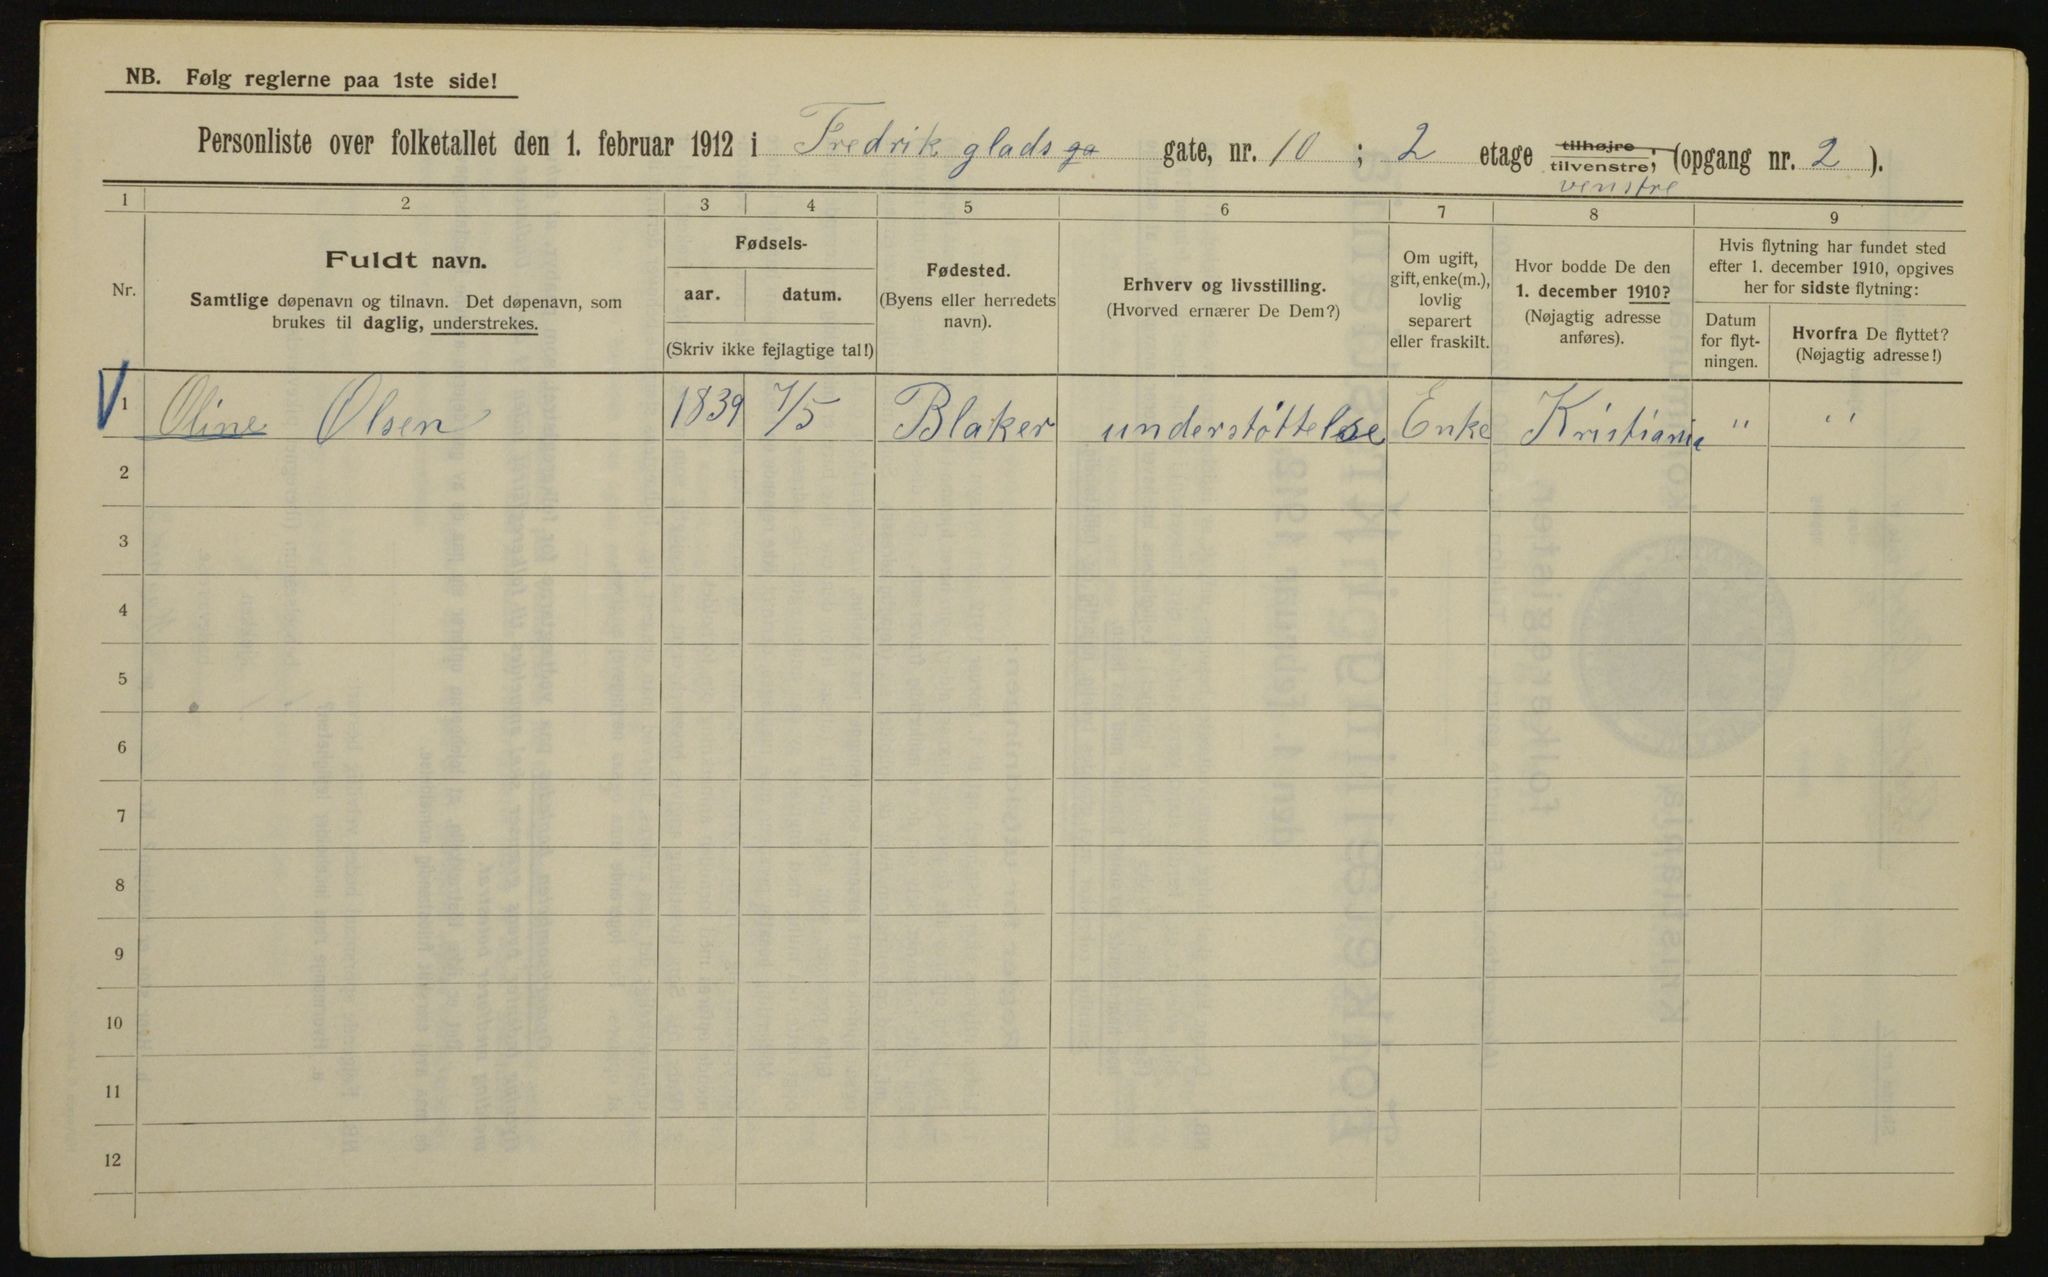 NB. Følg reglerne paa 1ste side!
Personliste over folketallet den 1. februar 1912 i Fredrik glads ga gate, nr. 10 ; 2 etage tilhøjre / tilvenstre; (opgang nr. 2 ).
venstre
1 2 3 4 5 6 7 8 9
Nr.
Fuldt navn.
Samtlige døpenavn og tilnavn. Det døpenavn, som
brukes til daglig, understrekes.
Fødsels-
aar. datum.
(Skriv ikke fejlagtige tal!)
Fødested.
(Byens eller herredets
navn).
Erhverv og livsstilling.
(Hvorved ernærer De Dem?)
Om ugift,
gift, enke(m.),
lovlig
separert
eller fraskilt.
Hvor bodde De den
1. december 1910?
(Nøjagtig adresse
anføres).
Hvis flytning har fundet sted
efter 1. december 1910, opgives
her for sidste flytning:
Datum
for flyt-
ningen.
Hvorfra De flyttet?
(Nøjagtig adresse!)
V 1 Oline Olsen 1839 7/5 Blaker understøttelse Enke Kristiania " "
2
3
4
5
6
7
8
9
10
11
12